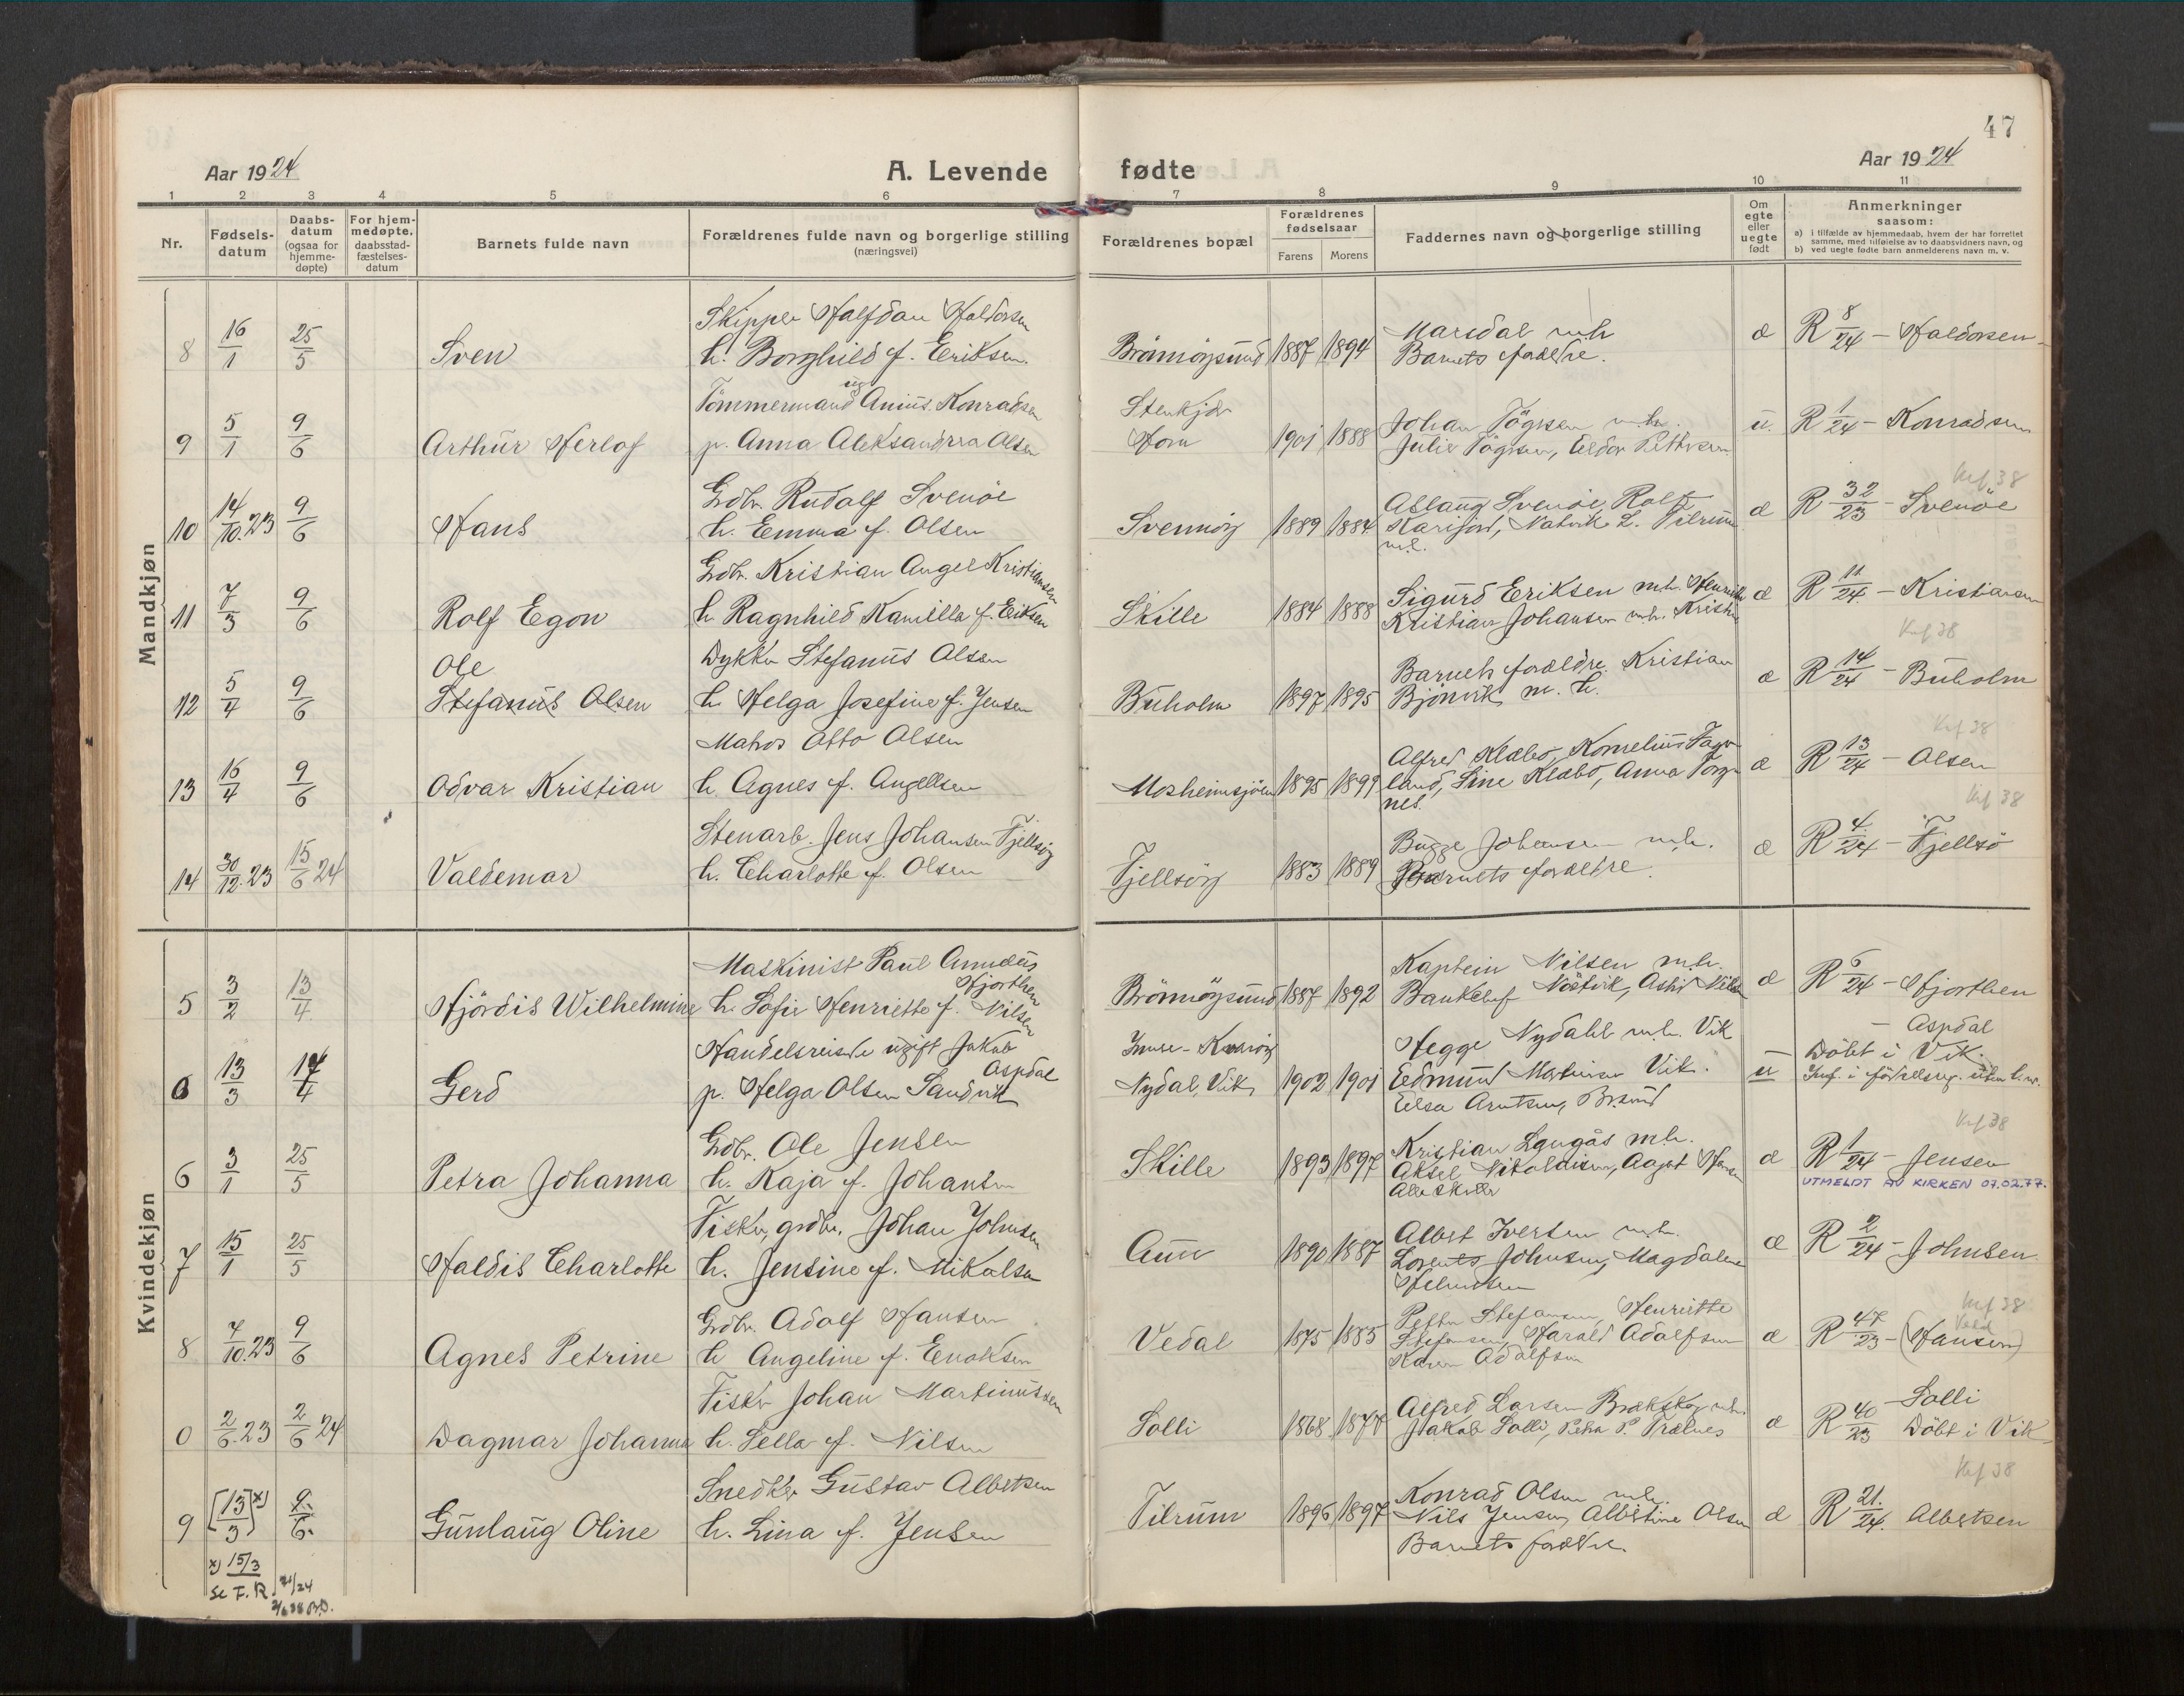 47
Aar 1924
A. Levende fødte
Aar 1924
1 2 3 4 5 6 7 8 9 10 11
Nr.
Fødsels-
datum
Daabs-
datum
(ogsaa for
hjemme-
døpte)
For hjem-
medøpte.
daabsstad-
fæstelses-
datum
Barnets fulde navn
Forældrenes fulde navn og borgerlige stilling
(næringsvei)
Forældrenes bopæl
Forældrenes
fødselsaar
Farens Morens
Faddernes navn og borgerlige stilling
Om
egte
eller
uegte
født
Anmerkninger
saasom:
a) i tilfælde av hjemmedaab, hvem der har forrettet
samme, med tilføielse av to daabsvidners navn, og
b) ved uegte fødte barn anmelderens navn m. v.
Mandkjøn
Skipper Halfdan Haldorsen
8 16/1 25/5 Sven h. Borghild f. Eriksen. Brönnöysund 1887 1894 Marsdal m.h. Barnets forældre. æ R 8/24 - Haldorsen
Tömmermand ug Anius Konradsen
9 5/1 9/6 Arthur Herlof p. Anna Aleksandra Olsen Stenkjer Horn 1901 1888 Johan m.h. Julie u. R 1/24 - Konradsen
Krf 38
Gdbr. Rudolf Svenöe
10 14/10.23 9/6 Hans h. Emma f. Olsen Svennöy 1889 1884 Aslaug Svenöe, Rolf Tilrum æ R 32/23 - Svenöe
Gdbr. Kristian Angel Kristiansen
11 7/3 9/6 Rolf Egon h Ragnhild Kamilla f. Eriksen Skille 1884 1888 Sigurd Eriksen m.h. Kristian Johansen m.h. æ R 11/24 - Kristiansen
Krf 38
Ole Dykker Stefanus Olsen
12 5/4 9/6 Stefanus Olsen h. Helga Josefine f. Jensen Buholm 1897 1895 Barnets forældre. Kristian Bjönvik m. h. æ R 14/24 - Buholm
Krf 38
Matros Otto Olsen
13 16/4 9/6 Odvar Kristian h. Agnes f. Angellsen Mosheimsjöen 1895 1899 Alfred Klæbo, Kornelius land, Line Klæbo, Anna Torg- nes. æ R 13/24 - Olsen
Krf 38
Stenarb. Jens Johansen Fjellsöy
14 30/12.23 15/6 24 Valdemar h. Charlotte f. Olsen Fjellsöy 1883 1889 Bugge Johansen m.h. Barnets forældre. æ R 4/24 - Fjellsö
Kvindekjøn
Maskinist Paul Amudeus Hjorthen
5 3/2 13/4 Hjördis Wilhelmine h. Sofie Henriette f. Nilsen Brönnöysund 1887 1892 Kaptein Nilsen m.h. Bankchef æ R 6/24 - Hjorthen
Handelsreisde ugift Jakob Aspdal
6 13/3 14/4 Gerd p. Helga Olsen Sandvik Nydal, Vik 1902 1901 Hegge Nydahl m.h. Vik Edmund Vik. Elsa Arntsen, Br.sund u - Aspdal Döbt i Vik.
Krf 38
Gdbr. Ole Jensen
6 3/1 25/5 Petra Johanna h. Kaja f. Johansen Skille 1893 1897 Kristian Langås m.h. Aksel Nikolaisen, Aagot Alle Skille æ R 1/24 - Jensen
UTMELDT AV KIRKEN 07.02.77.
Fisker, grdbr. Johan Johnsen
7 15/1 25/5 Haldis Charlotte h. Jensine f. Mikalsen Aun 1890 1887 Albert Iversen m.h. Lorents Johnsen, Magdalene æ R 2/24 - Johnsen
Krf 38
Gdbr. Adolf Hansen
8 7/10.23 9/6 Agnes Petrine h Angeline f. Enoksen Vedal 1875 1885 Petter Stefansen, Henriette Stefansen, Harald Adolfsen Karen Adolfsen æ R 47/23 - (Hansen)
Fisker Johan Martinussen
0 2/6.23 2/6 24 Dagmar Johanna h. Sella f. Nilsen Solli 1868 1877 Alfred Larsen m.h. Jakob Solli, Petra P. Trælnes æ R 40/23 - Solli Döbt i Vik
Krf 38
Snedker Gustav Albertsen
9 [13/3] x) 9/6. Gunlaug Oline h. Lina f. Jensen Tilrum 1896 1897 Konrad Olsen m.h. Nils Jensen, Albertine Olsen Barnets forældre. æ R 21/24. Albertsen
x) 15/3
Se F.R. 21/24